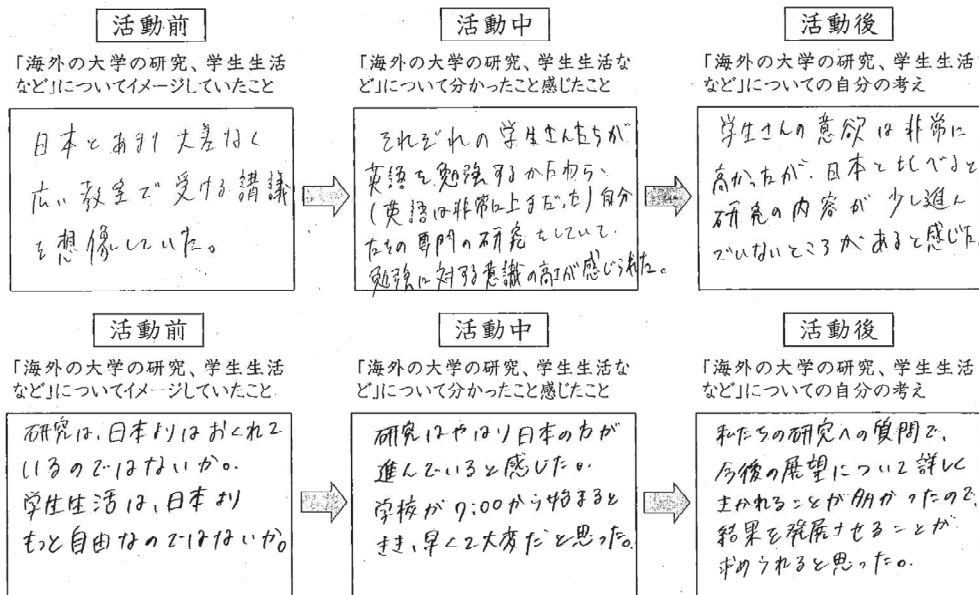 活動前
「海外の大学の研究、学生生活
など」についてイメージしていたこと
日本とあまり大差なく
広い教室で受ける講義
を想像していた。
活動中
「海外の大学の研究、学生生活な
ど」について分かったこと感じたこと
それぞれの学生さんたちが
英語を勉強するかたわら、
(英語は非常に上手だった)自分
たちの専門の研究をしていて、
勉強に対する意識の高さが感じられた。
活動後
「海外の大学の研究、学生生活
など」についての自分の考え
学生さんの意欲は非常に
高かったが、日本と比べると
研究の内容が少し進ん
でいないところがあると感じた。
活動前
「海外の大学の研究、学生生活
など」についてイメージしていたこと
研究は、日本よりはおくれて
いるのではないか。
学生生活は、日本より
もっと自由なのではないか。
活動中
「海外の大学の研究、学生生活な
ど」について分かったこと感じたこと
研究はやはり日本の方が
進んでいると感じた。
学校が7:00から始まると
きき、早くて大変だと思った。
活動後
「海外の大学の研究、学生生活
など」についての自分の考え
私たちの研究への質問で、
今後の展望について詳しく
きかれることが多かったので、
結果を発展させることが
求められると思った。